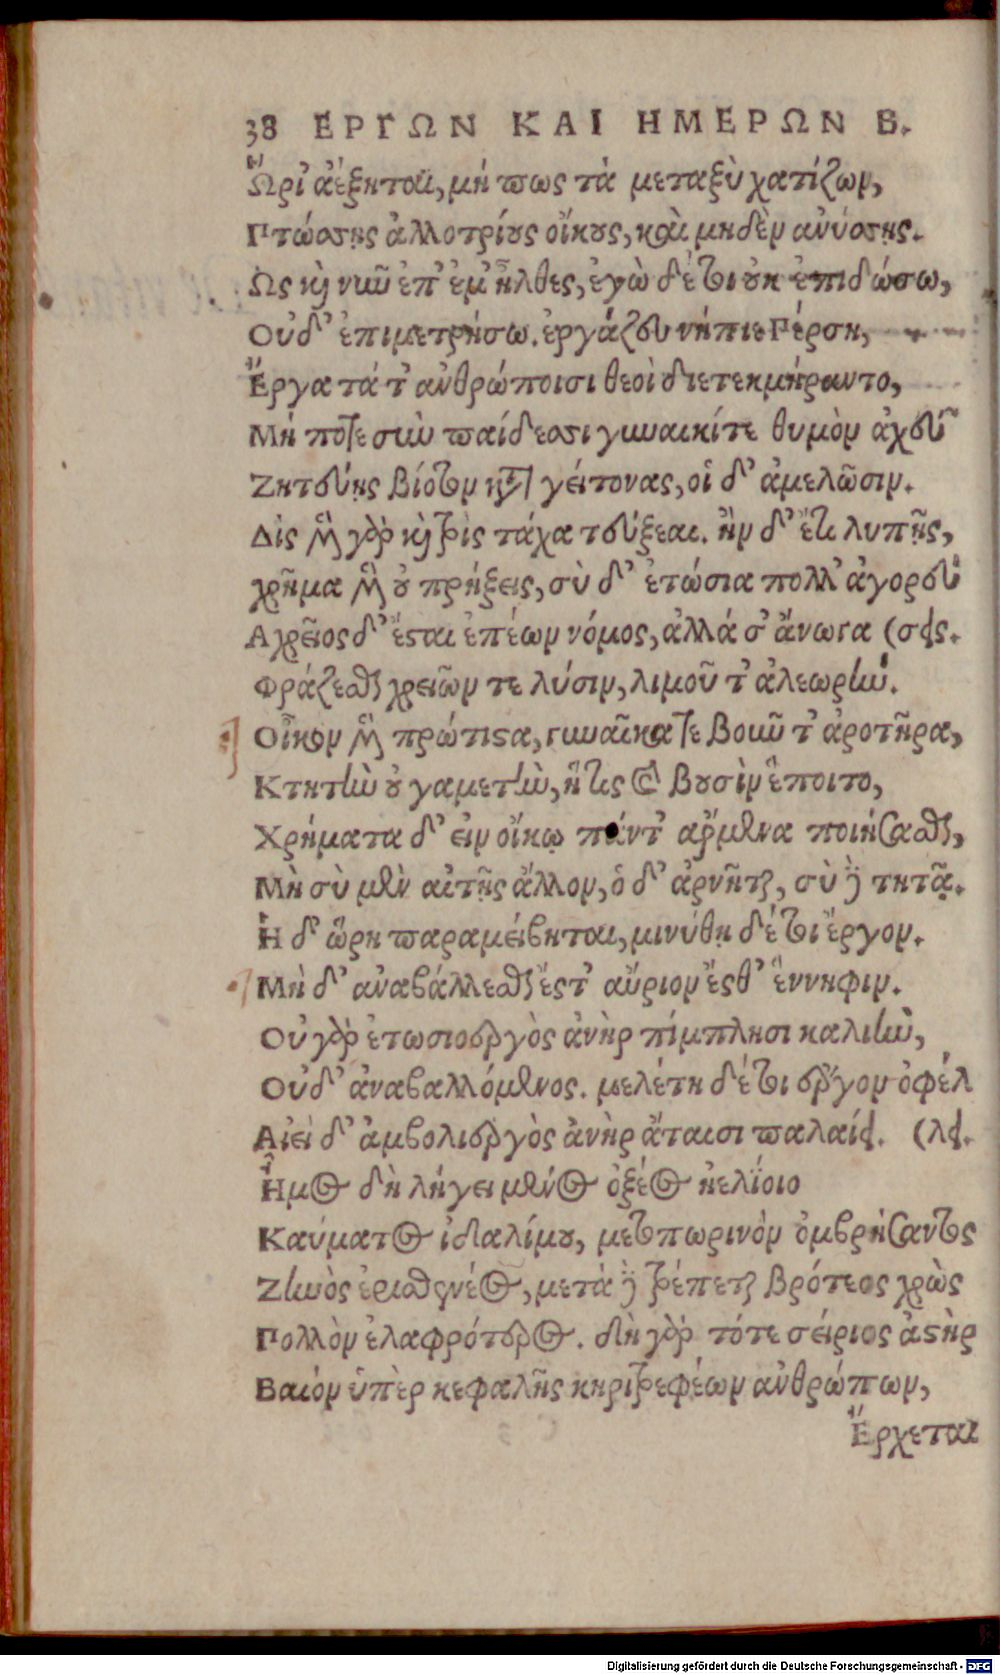 38 ΕΡΓΩΝ ΚΑΙ ΗΜΕΡΩΝ Β.
Ὥρι' ἀέξηται, μή πως τὰ μεταξὺ χατίζων,
Πτώσσῃς ἀλλοτρίους οἴκους, καὶ μηδὲν ἀνύσσῃς.
Ὡς καὶ νῦν ἐπ' ἐμ' ἦλθες, ἐγὼ δέ τοι οὐκ ἐπιδώσω,
Οὐδ' ἐπιμετρήσω. ἐργάζευ νήπιε Πέρση,
Ἔργα τά τ' ἀνθρώποισι θεοὶ διετεκμήραντο,
Μή ποτε σὺν παίδεσσι γυναικί τε θυμὸν ἀχεύ
Ζητεύῃς βίοτον κατὰ γείτονας, οἱ δ' ἀμελῶσιν.
Δὶς μὲν γὰρ καὶ τρὶς τάχα τεύξεαι. ἢν δ' ἔτι λυπῇς,
χρῆμα μὲν οὐ πρήξεις, σὺ δ' ἐτώσια πολλ' ἀγορεύ
Ἀχρεῖος δ' ἔσται ἐπέων νόμος, ἀλλά σ' ἄνωγα (σεις.
Φράζεσθαι χρειῶν τε λύσιν, λιμοῦ τ' ἀλεωρήν.
Οἶκον μὲν πρώτιστα, γυναῖκα τε βοῦν τ' ἀροτῆρα,
Κτητὴν οὐ γαμετὴν, ἥτις καὶ βουσὶν ἕποιτο,
Χρήματα δ' εἰν οἴκῳ πάντ' ἄρμενα ποιήσασθαι,
Μὴ σὺ μὲν αἰτῇς ἄλλον, ὁ δ' ἀρνῆται, σὺ δὲ τητᾷ.
Ἡ δ' ὥρη παραμείβηται, μινύθῃ δέ τοι ἔργον.
Μὴ δ' ἀναβάλλεσθαι ἔς τ' αὔριον ἔσθ' ἔννηφιν.
Οὐ γὰρ ἐτωσιοεργὸς ἀνὴρ πίμπλησι καλιὴν,
Οὐδ' ἀναβαλλόμενος. μελέτη δέ τοι ἔργον ὀφέλ
Αἰεὶ δ' ἀμβολιεργὸς ἀνὴρ ἄταισι παλαίει. (λει.
Ἦμος δὴ λήγει μένος ὀξέος ἠελίοιο
Καύματος ἰδαλίμου, μετοπωρινὸν ὀμβρήσαντος
Ζηνὸς ἐρισθενέος, μετὰ δὲ τρέπεται βρότεος χρὼς
Πολλὸν ἐλαφρότερος. δὴ γὰρ τότε σείριος ἀστὴρ
Βαιὸν ὑπὲρ κεφαλῆς κηριτρεφέων ἀνθρώπων,
Ἔρχεται
Digitalisierung gefördert durch die Deutsche Forschungsgemeinschaft - DFG